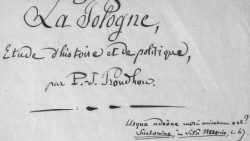 La Pologne,
Etude d'histoire et de politique,
par P.-J. Proudhon.
Usque adeône mori miserum est?
Suétonius, in Vitâ Neronis, c. 47